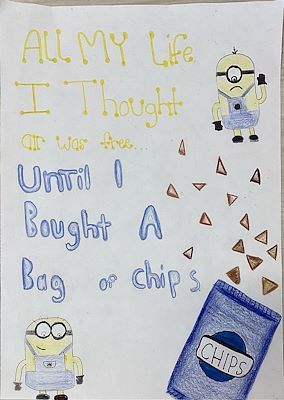 All MY Life
I Thought
air was free...
Until I
Bought A
Bag of chips
CHIPS